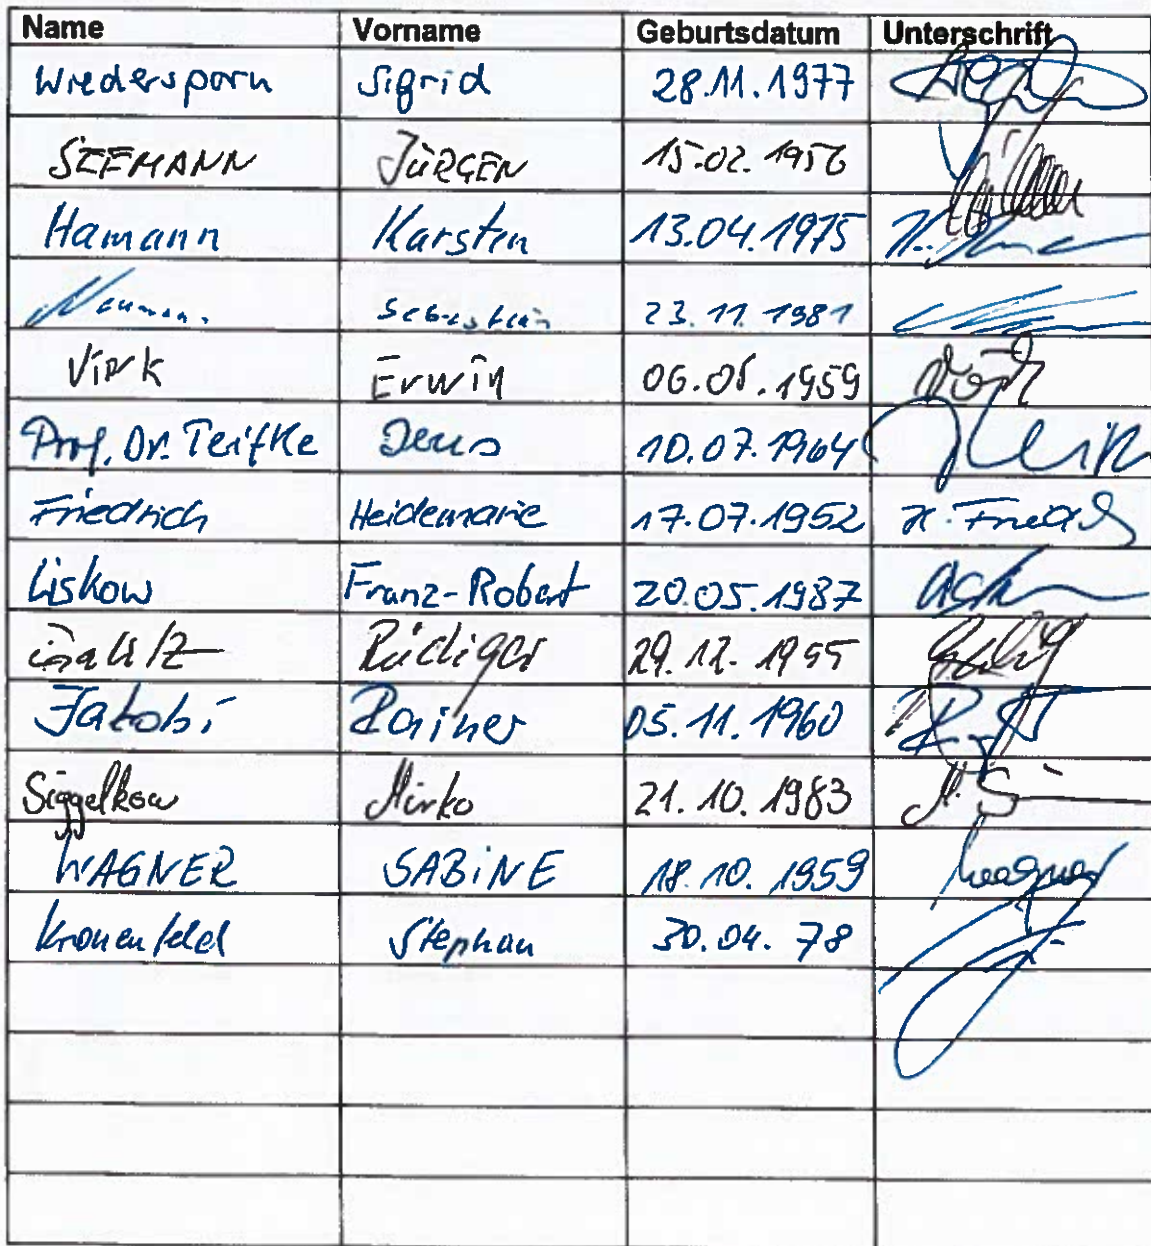 Name Vorname Geburtsdatum Unterschrift
Wiedersporn Sigrid 28.11.1977
SEEMANN JÜRGEN 15.02.1956
Hamann Karsten 13.04.1975
Neumann Sebastian 23.11.1981
Erwin 1959
Prof. Dr. Teifke Jens 10.07.1964
Friedrich Heidemarie 17.07.1952 H. Friedrich
Liskow Franz-Robert 20.05.1987
Rüdiger 29.12.1955
Jakobi Rainer 05.11.1960
Siggelkow Mirko 21.10.1983
WAGNER SABINE 18.10.1959 Wagner
Kronenfeld Stephan 30.04.78